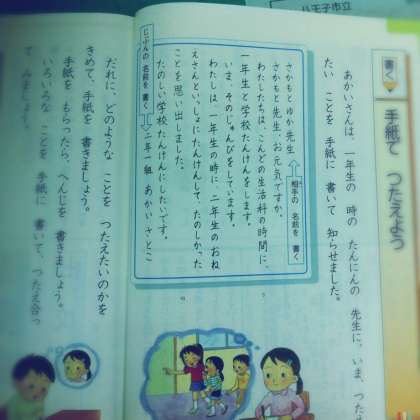 八王子市立
書く
手紙で つたえよう
あかいさんは、一年生の 時の たんにんの 先生に、いま、つたえ
たい ことを 手紙に 書いて 知らせました。
相手の 名前を 書く
さかもと ゆか先生
さかもと先生、お元気ですか。
わたしたちは、こんどの生活科の時間に、
一年生と学校たんけんをします。
いま、そのじゅんびをしています。
わたしは、一年生の時に、二年生のおね
えさんといっしょにたんけんして、たのしかった
ことを思い出しました。
たのしい学校たんけんにしたいです。
二年一組 あかい さとこ
じぶんの 名前を 書く
だれに、どのような ことを つたえたいのかを
きめて、手紙を 書きましょう。
手紙を もらったら、へんじを 書きましょう。
いろいろな ことを 手紙に 書いて、つたえ合っ
て みましょう。